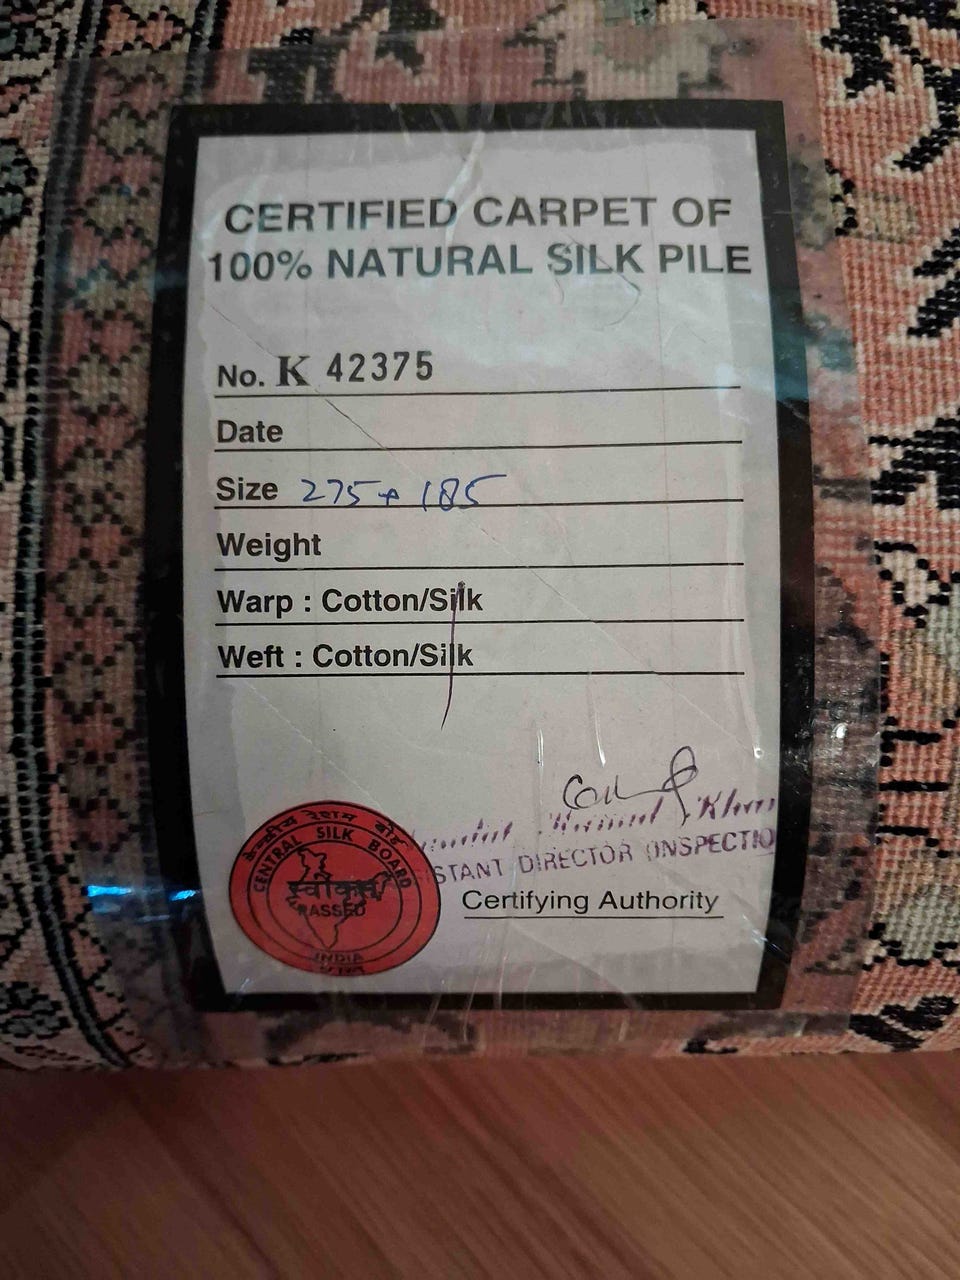 CERTIFIED CARPET OF
100% NATURAL SILK PILE
No. K 42375
Date
Size 275 + 185
Weight
Warp : Cotton/Silk
Weft : Cotton/Silk
Khan
STANT DIRECTOR (INSPECTIO
Certifying Authority
केन्द्रीय रेशम बोर्ड
CENTRAL SILK BOARD
PASSED
INDIA